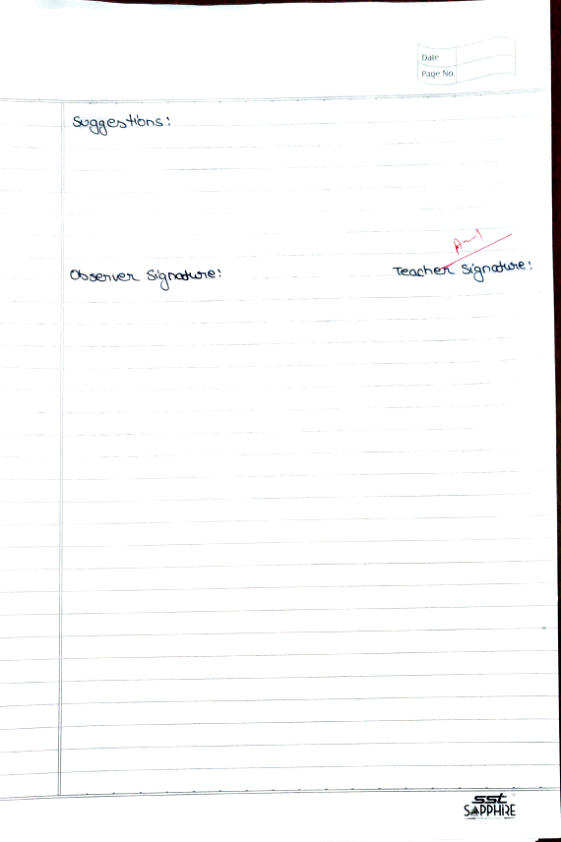 Date
Page No.
Suggestions:
Observer Signature:
Teacher Signature:
sst
SAPPHIRE